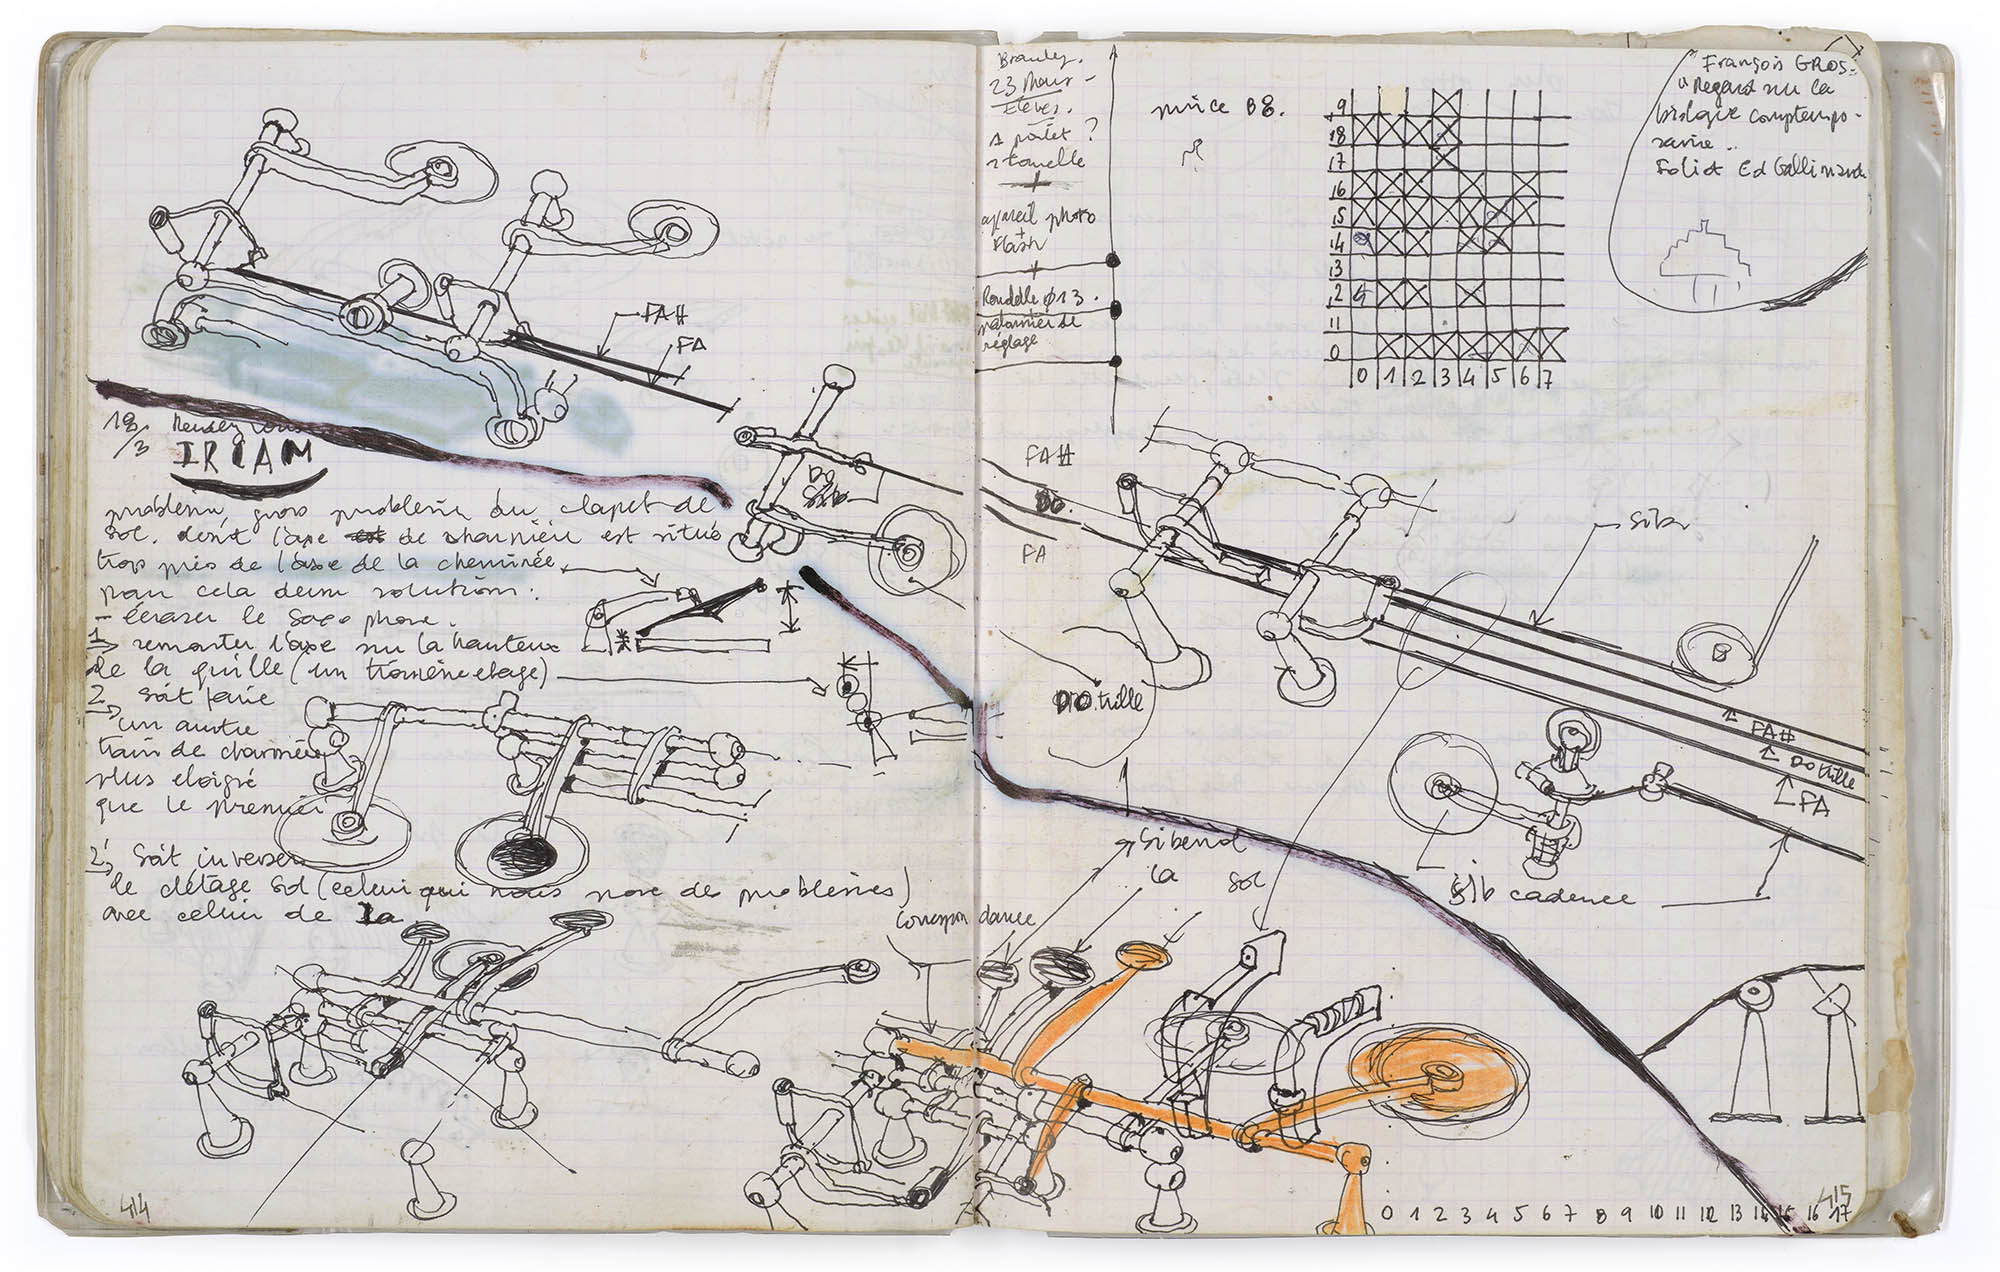 FA#
FA
18/3 Rendez vous
IRCAM
problème, gros problème du clapet de
sol. dont l'axe de charnière est situé
trop près de l'axe de la cheminée,
pour cela deux solutions.
- écraser le saxophone.
1 remonter l'axe sur la hauteur
de la quille (un troisième etage)
2 soit faire
un autre
train de charnière
plus eloigné
que le premier
2' soit inverser
le clétage sol (celui qui nous pose de problèmes)
avec celui de la
correspondance
414
23 Mars -
Elèves.
appareil photo
+
Flash
+
Rondelle ø13.
réglage
19
18
17
16
15
14
13
12
11
10
0 1 2 3 4 5 6 7
François GROS=
"Regard sur la
biologie comptempo-
raine..
Ed Gallimard
FA#
DO.
FA
FA#
FA
Sibemol
la
sol
sib cadence
415
0 1 2 3 4 5 6 7 8 9 10 11 12 13 14 15 16 17